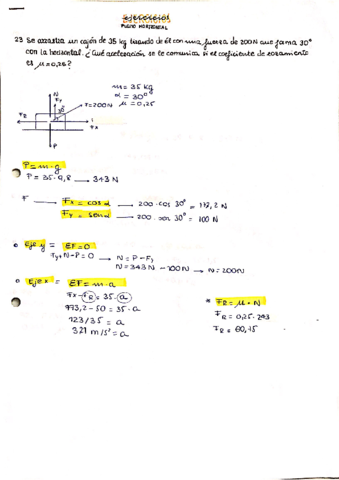 ejercicios
PLANO HORIZONTAL
23 Se arrastra un cajón de 35 kg tirando de él con una fuerza de 200N que forma 30º
con la horizontal. ¿Qué aceleración se le comunica si el coeficiente de rozamiento
es μ=0,25?
m= 35 kg
α = 30º
μ = 0,25
N
Fy
F=200N
30º
FR
Fx
P
P=m·g
P= 35·9,8 → 343 N
F → Fx = cos α → 200·cos 30º = 173,2 N
Fy = sen α → 200·sen 30º = 100 N
o Eje y = EF=0
Fy+N-P=0 → N = P-Fy
N=343N -100N → N=200N
o Eje x = EF=m·a
Fx-FR=35·a
173,2-50=35·a
123/35 = a
3,21 m/s² = a
* FR= μ·N
FR=0,25·243
FR= 60,75